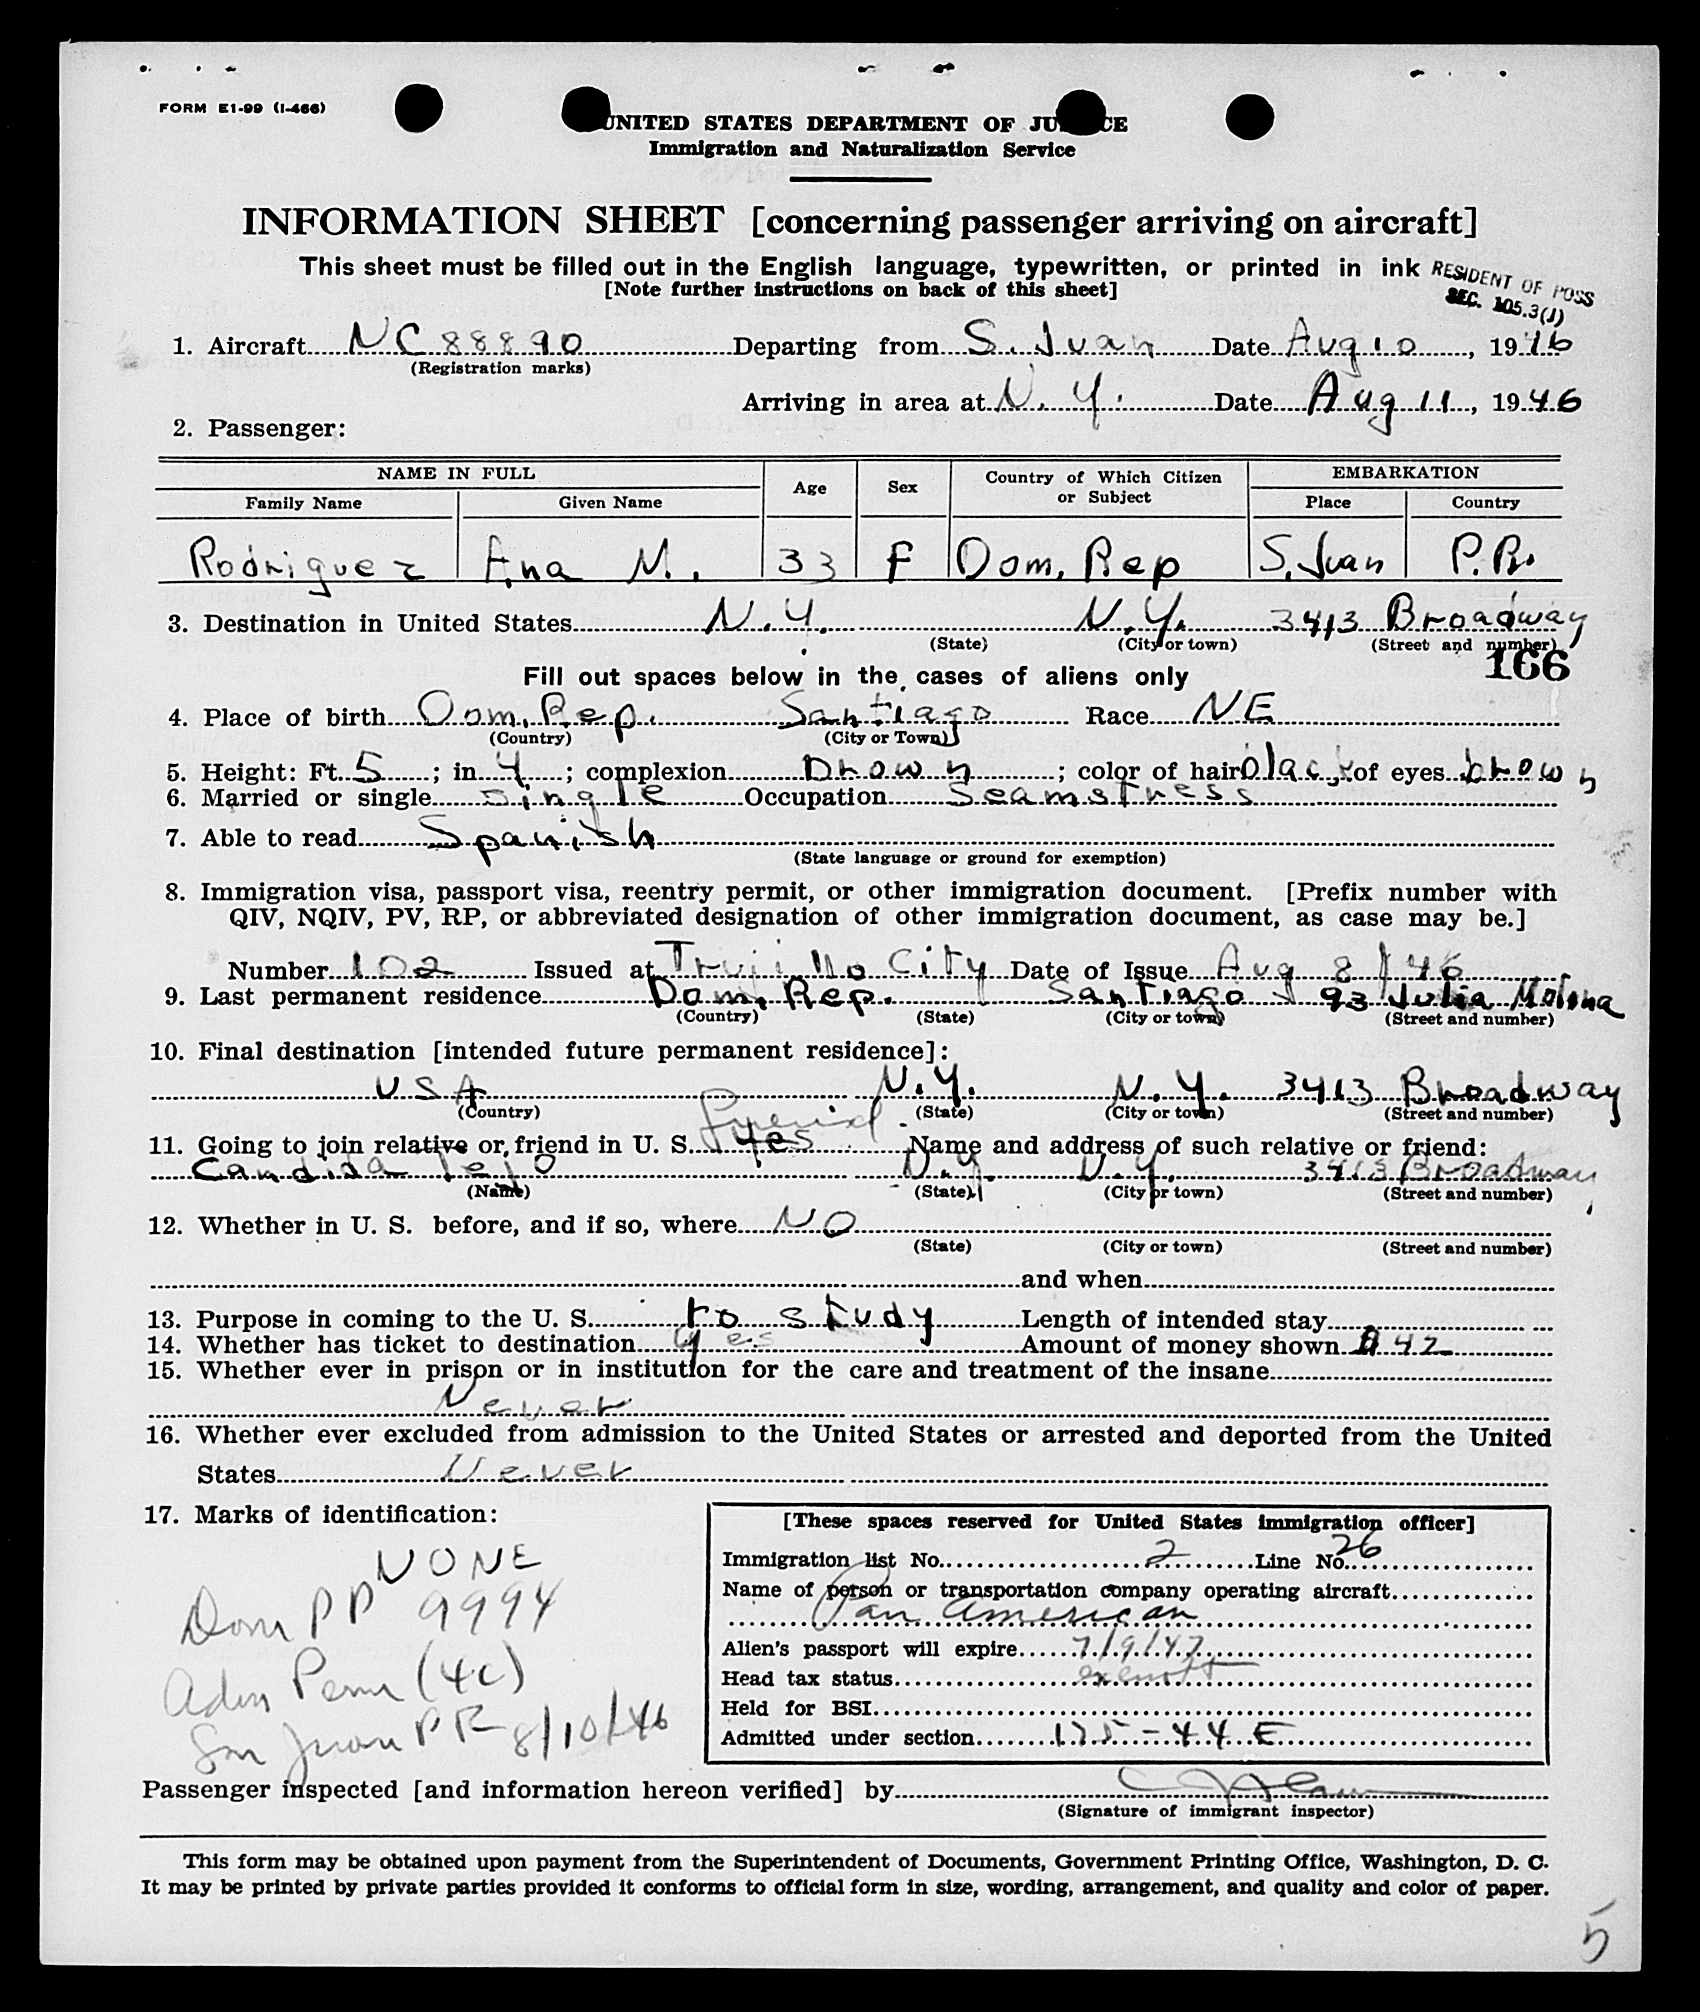 FORM E1-99 (I-466)
UNITED STATES DEPARTMENT OF JU CE
Immigration and Naturalization Service
INFORMATION SHEET [concerning passenger arriving on aircraft]
This sheet must be filled out in the English language, typewritten, or printed in ink
[Note further instructions on back of this sheet]
RESIDENT OF POSS
SEC. 105.3(J)
1. Aircraft NC 88890 Departing from S. Juan Date Aug 10, 1946
(Registration marks)
Arriving in area at N.Y. Date Aug 11, 1946
2. Passenger:
NAME IN FULL Age Sex Country of Which Citizen or Subject EMBARKATION
Family Name Given Name Place Country
Rodriguez Ana M. 33 F Dom. Rep S. Juan P.R.
3. Destination in United States N.Y. N.Y. 3413 Broadway
(State) (City or town) (Street and number)
166
Fill out spaces below in the cases of aliens only
4. Place of birth Dom. Rep. Santiago Race NE
(Country) (City or Town)
5. Height: Ft. 5; in. 4; complexion brown; color of hair black of eyes brown
6. Married or single single Occupation Seamstress
7. Able to read Spanish
(State language or ground for exemption)
8. Immigration visa, passport visa, reentry permit, or other immigration document. [Prefix number with
QIV, NQIV, PV, RP, or abbreviated designation of other immigration document, as case may be.]
Number 102 Issued at Trujillo City Date of Issue Aug 8/46
9. Last permanent residence Dom. Rep. Santiago 93 Julia Molina
(Country) (State) (City or town) (Street and number)
10. Final destination [intended future permanent residence]:
USA N.Y. N.Y. 3413 Broadway
(Country) (State) (City or town) (Street and number)
Friend
11. Going to join relative or friend in U. S. Yes Name and address of such relative or friend:
Candida Tejo N.Y. N.Y. 3413 Broadway
(Name) (State) (City or town) (Street and number)
12. Whether in U. S. before, and if so, where NO
(State) (City or town) (Street and number)
and when
13. Purpose in coming to the U. S. to study Length of intended stay
14. Whether has ticket to destination yes Amount of money shown $42
15. Whether ever in prison or in institution for the care and treatment of the insane
Never
16. Whether ever excluded from admission to the United States or arrested and deported from the United
States Never
17. Marks of identification:
NONE
Dom PP 9994
Adm Perm (4c)
San Juan PR 8/10/46
[These spaces reserved for United States immigration officer]
Immigration list No. 2 Line No. 26
Name of person or transportation company operating aircraft
Pan American
Alien's passport will expire 7/9/47
Head tax status exempt
Held for BSI
Admitted under section 175-44 E
Passenger inspected [and information hereon verified] by
(Signature of immigrant inspector)
This form may be obtained upon payment from the Superintendent of Documents, Government Printing Office, Washington, D. C.
It may be printed by private parties provided it conforms to official form in size, wording, arrangement, and quality and color of paper.
5